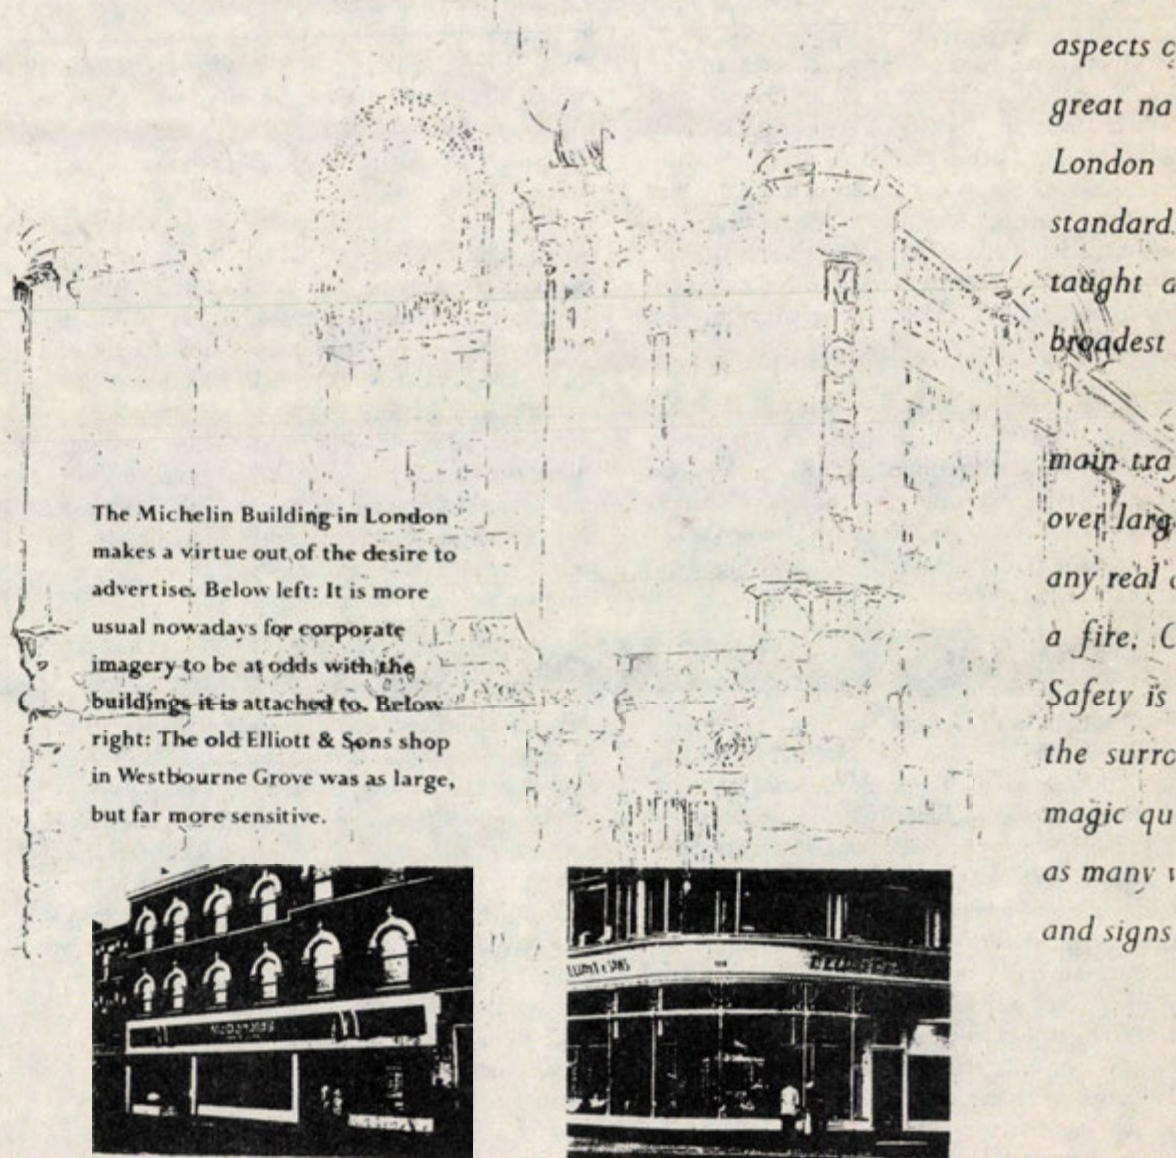 The Michelin Building in London
makes a virtue out of the desire to
advertise. Below left: It is more
usual nowadays for corporate
imagery to be at odds with the
buildings it is attached to. Below
right: The old Elliott & Sons shop
in Westbourne Grove was as large,
but far more sensitive.
McDonald's
ELLIOTT & SONS
aspects
great na
London
standard.
taught a
broadest
main tra
over larg
any real
a fire, C
Safety is
the surro
magic qu
as many
and signs